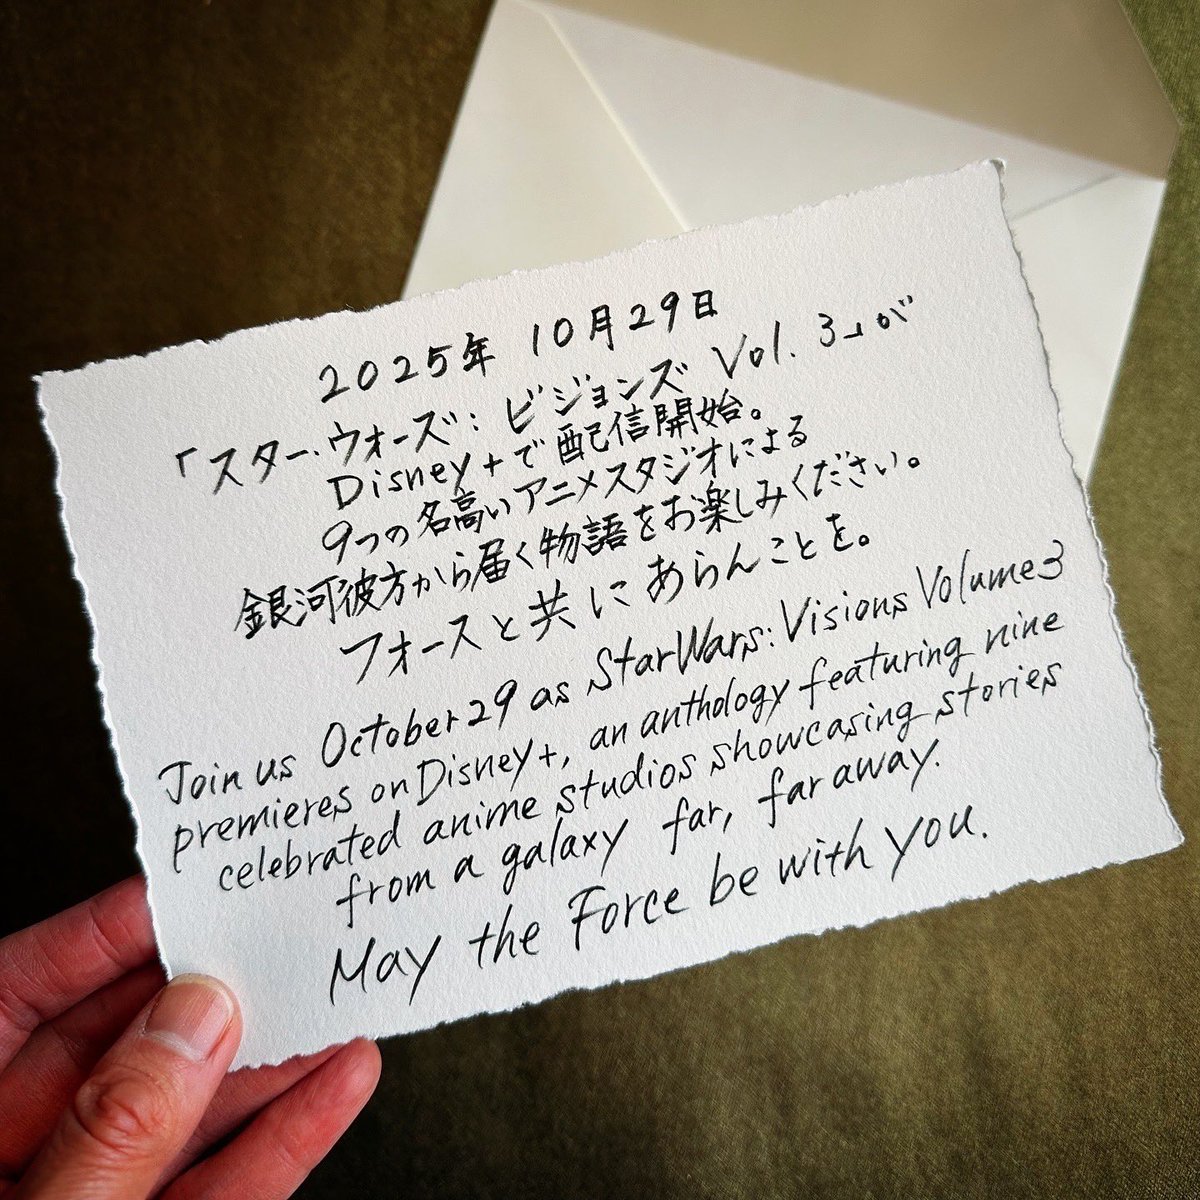 2025年 10月29日
「スター・ウォーズ：ビジョンズ Vol. 3」が
Disney+で配信開始。
9つの名高いアニメスタジオによる
銀河彼方から届く物語をお楽しみください。
フォースと共にあらんことを。
Join us October 29 as Star Wars: Visions Volume 3
premieres on Disney+, an anthology featuring nine
celebrated anime studios showcasing stories
from a galaxy far, far away.
May the Force be with you.